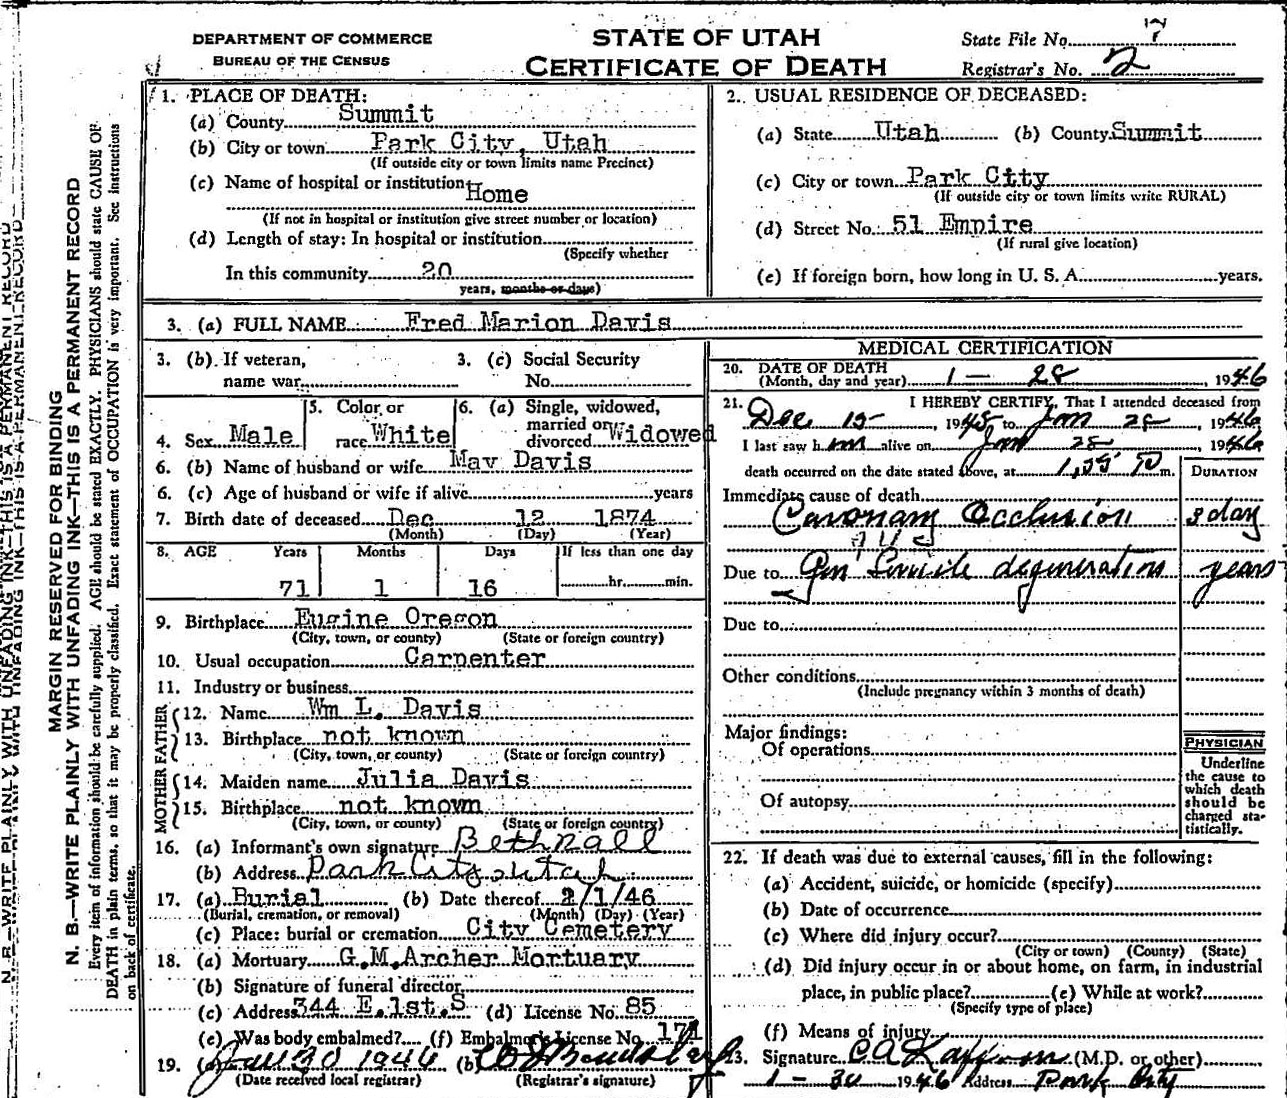 DEPARTMENT OF COMMERCE
BUREAU OF THE CENSUS
STATE OF UTAH
CERTIFICATE OF DEATH
State File No. 7
Registrar's No. 2
MARGIN RESERVED FOR BINDING
N. B.—WRITE PLAINLY WITH UNFADING INK—THIS IS A PERMANENT RECORD
Every item of information should be carefully supplied. AGE should be stated EXACTLY. PHYSICIANS should state CAUSE OF
DEATH in plain terms, so that it may be properly classified. Exact statement of OCCUPATION is very important. See instructions
on back of certificate.
1. PLACE OF DEATH:
(a) County Summit
(b) City or town Park City, Utah
(If outside city or town limits name Precinct)
(c) Name of hospital or institution
Home
(If not in hospital or institution give street number or location)
(d) Length of stay: In hospital or institution
(Specify whether
In this community 20
years, months or days)
2. USUAL RESIDENCE OF DECEASED:
(a) State Utah (b) County Summit
(c) City or town Park City
(If outside city or town limits write RURAL)
(d) Street No. 51 Empire
(If rural give location)
(e) If foreign born, how long in U. S. A. years.
3. (a) FULL NAME Fred Marion Davis
3. (b) If veteran, name war
3. (c) Social Security No.
4. Sex Male
5. Color or race White
6. (a) Single, widowed, married or divorced Widowed
6. (b) Name of husband or wife May Davis
6. (c) Age of husband or wife if alive years
7. Birth date of deceased Dec 12 1874
(Month) (Day) (Year)
8. AGE Years Months Days If less than one day
71 1 16 hr. min.
9. Birthplace Eugine Oregon
(City, town, or county) (State or foreign country)
10. Usual occupation Carpenter
11. Industry or business
FATHER
12. Name Wm L. Davis
13. Birthplace not known
(City, town, or county) (State or foreign country)
MOTHER
14. Maiden name Julia Davis
15. Birthplace not known
(City, town, or county) (State or foreign country)
16. (a) Informant's own signature Beth Nall
(b) Address Park City Utah
17. (a) Burial (b) Date thereof 2/1/46
(Burial, cremation, or removal) (Month) (Day) (Year)
(c) Place: burial or cremation City Cemetery
18. (a) Mortuary G.M.Archer Mortuary
(b) Signature of funeral director
(c) Address 344 E.1st.S (d) License No. 85
(e) Was body embalmed? (f) Embalmer's License No. 171
19. (a) Jan 30 1946 (b)
(Date received local registrar) (Registrar's signature)
MEDICAL CERTIFICATION
20. DATE OF DEATH
(Month, day and year) 1 — 28, 1946
21. I HEREBY CERTIFY, That I attended deceased from
Dec 15, 1945, to Jan 28, 1946
I last saw h im alive on Jan 28 1946
death occurred on the date stated above, at 1,55 P m.
DURATION
Immediate cause of death
Coronary Occlusion 3 day
Due to Gen' Senile degeneration years
Due to
Other conditions
(Include pregnancy within 3 months of death)
Major findings:
Of operations
Of autopsy
PHYSICIAN
Underline
the cause to
which death
should be
charged sta-
tistically.
22. If death was due to external causes, fill in the following:
(a) Accident, suicide, or homicide (specify)
(b) Date of occurrence
(c) Where did injury occur?
(City or town) (County) (State)
(d) Did injury occur in or about home, on farm, in industrial
place, in public place? (e) While at work?
(Specify type of place)
(f) Means of injury
23. Signature (M.D. or other)
1 — 30 1946 Address Park City